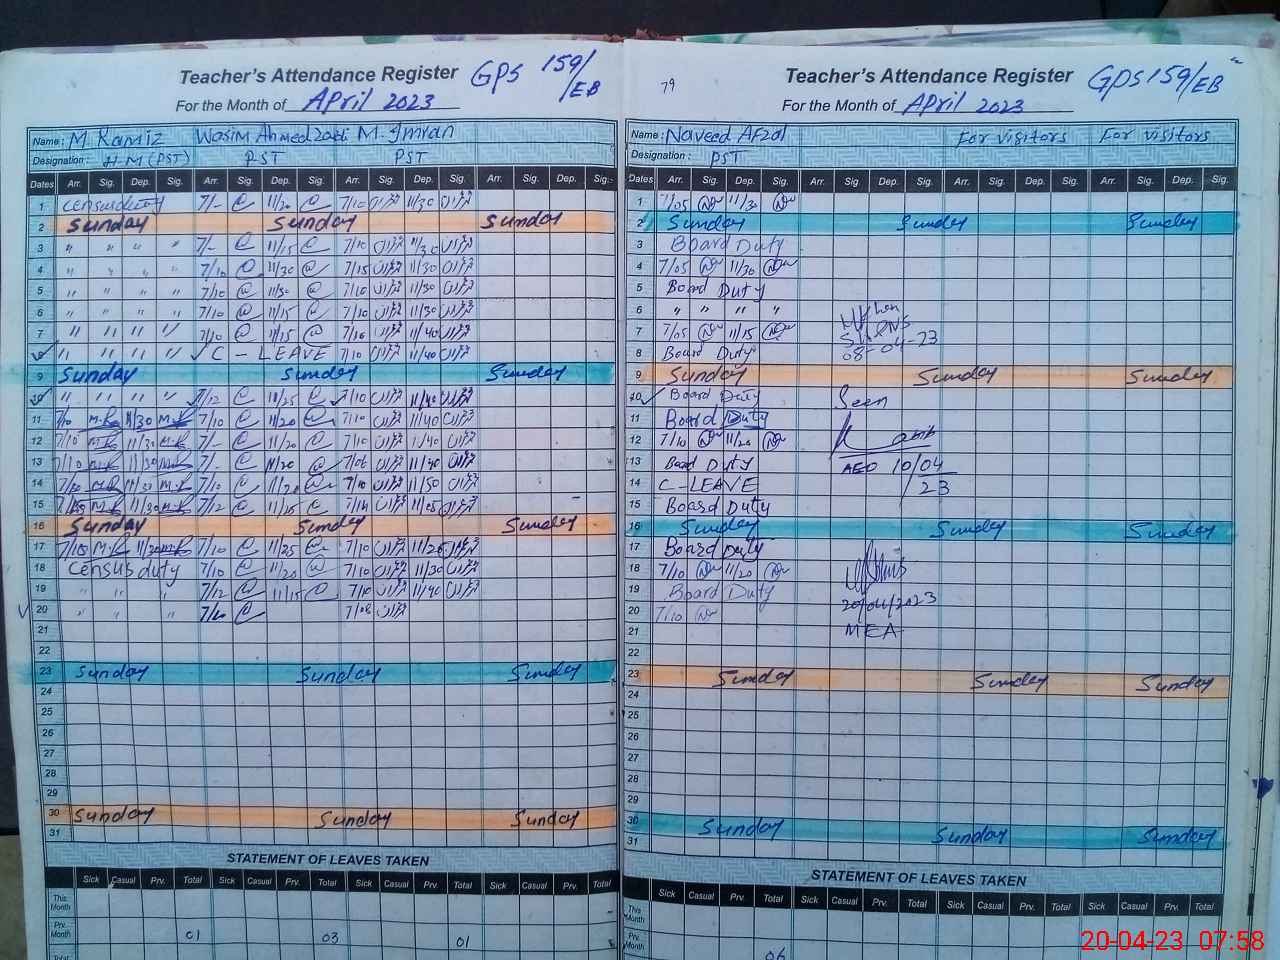 Teacher's Attendance Register GPS 159/EB
For the Month of April 2023
Name: M. Ramiz Wasim Ahmed Zahdi M. Imran
Designation: H.M (PST) PST PST
Dates Arr. Sig. Dep. Sig. Arr. Sig. Dep. Sig. Arr. Sig. Dep. Sig. Arr. Sig. Dep. Sig.
1 census duty 7/- 11/20 7/10 11/30
2 Sunday Sunday Sunday
3 " " " " 7/- 11/15 7/10 11/30
4 " " " " 7/10 11/30 7/15 11/30
5 " " " " 7/10 11/30 7/10 11/30
6 " " " " 7/10 11/15 7/10 11/30
7 " " " " 7/10 11/15 7/10 11/40
8 " " " " C - LEAVE 7/10 11/40
9 Sunday Sunday Sunday
10 " " " " 7/12 11/25 7/10 11/40
11 7/10 M.R 11/30 M.R 7/10 11/20 7/10 11/40
12 7/10 M.R 11/30 M.R 7/- 11/20 7/10 11/40
13 7/10 M.R 11/30 M.R 7/- 11/20 11/40
14 M.R 11/30 M.R 7/10 11/20 7/10 11/50
15 M.R 11/30 M.R 7/12 11/05
16 Sunday Sunday Sunday
17 M.R M.R 7/10 11/25 7/10
18 census duty 7/10 11/20 7/10 11/30
19 " " " 7/12 11/15 7/10 11/40
20 " " " 7/10 7/08
21
22
23 Sunday Sunday Sunday
24
25
26
27
28
29
30 Sunday Sunday Sunday
31
STATEMENT OF LEAVES TAKEN
Sick Casual Prv. Total Sick Casual Prv. Total Sick Casual Prv. Total Sick Casual Prv. Total
This Month
Prv. Month 01 03 01
Total
79
Teacher's Attendance Register GPS 159/EB
For the Month of April 2023
Name: Naveed Afzal For visitors For visitors
Designation: PST
Dates Arr. Sig. Dep. Sig. Arr. Sig Dep. Sig. Arr. Sig. Dep. Sig. Arr. Sig. Dep. Sig.
1 7/05 11/30
2 Sunday Sunday Sunday
3 Board Duty
4 7/05 11/30
5 Board Duty
6 " " " "
7 7/05 11/15
8 Board Duty 08-04-23
9 Sunday Sunday Sunday
10 Board Duty Seen
11 Board Duty
12 7/10 11/20
13 Board Duty AEO 10/04
14 C-LEAVE 23
15 Board Duty
16 Sunday Sunday Sunday
17 Board Duty
18 7/10 11/20
19 Board Duty 20/04/2023
20 7/10
21 MEA
22
23 Sunday Sunday Sunday
24
25
26
27
28
29
30 Sunday Sunday Sunday
31
STATEMENT OF LEAVES TAKEN
Sick Casual Prv. Total Sick Casual Prv. Total Sick Casual Prv. Total Sick Casual Prv. Total
This Month
Prv. Month 06
Total
20-04-23 07:58